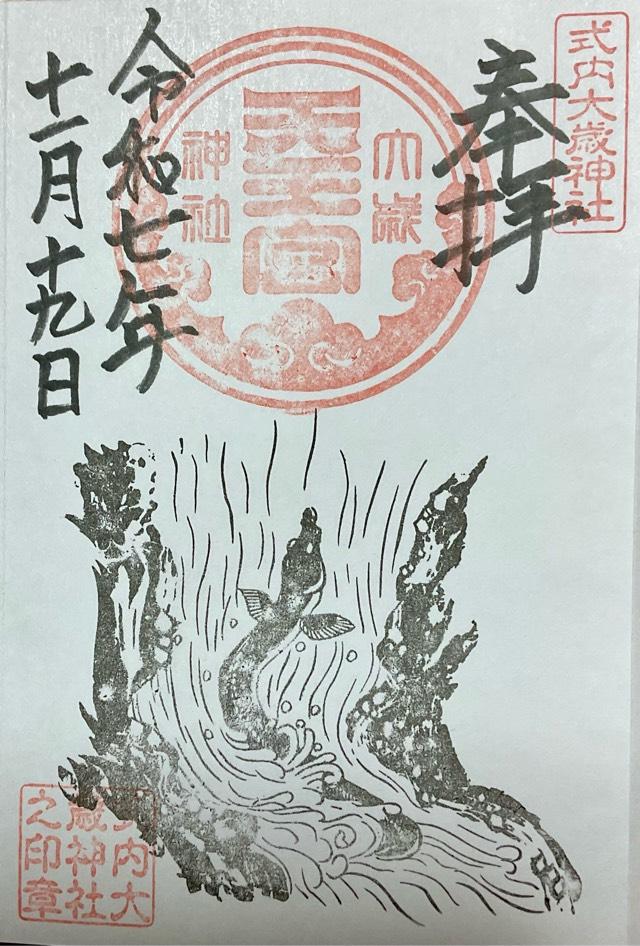 式内大歳神社
奉拝
大歳
天王宮
神社
令和七年
十一月十九日
式内大
歳神社
之印章